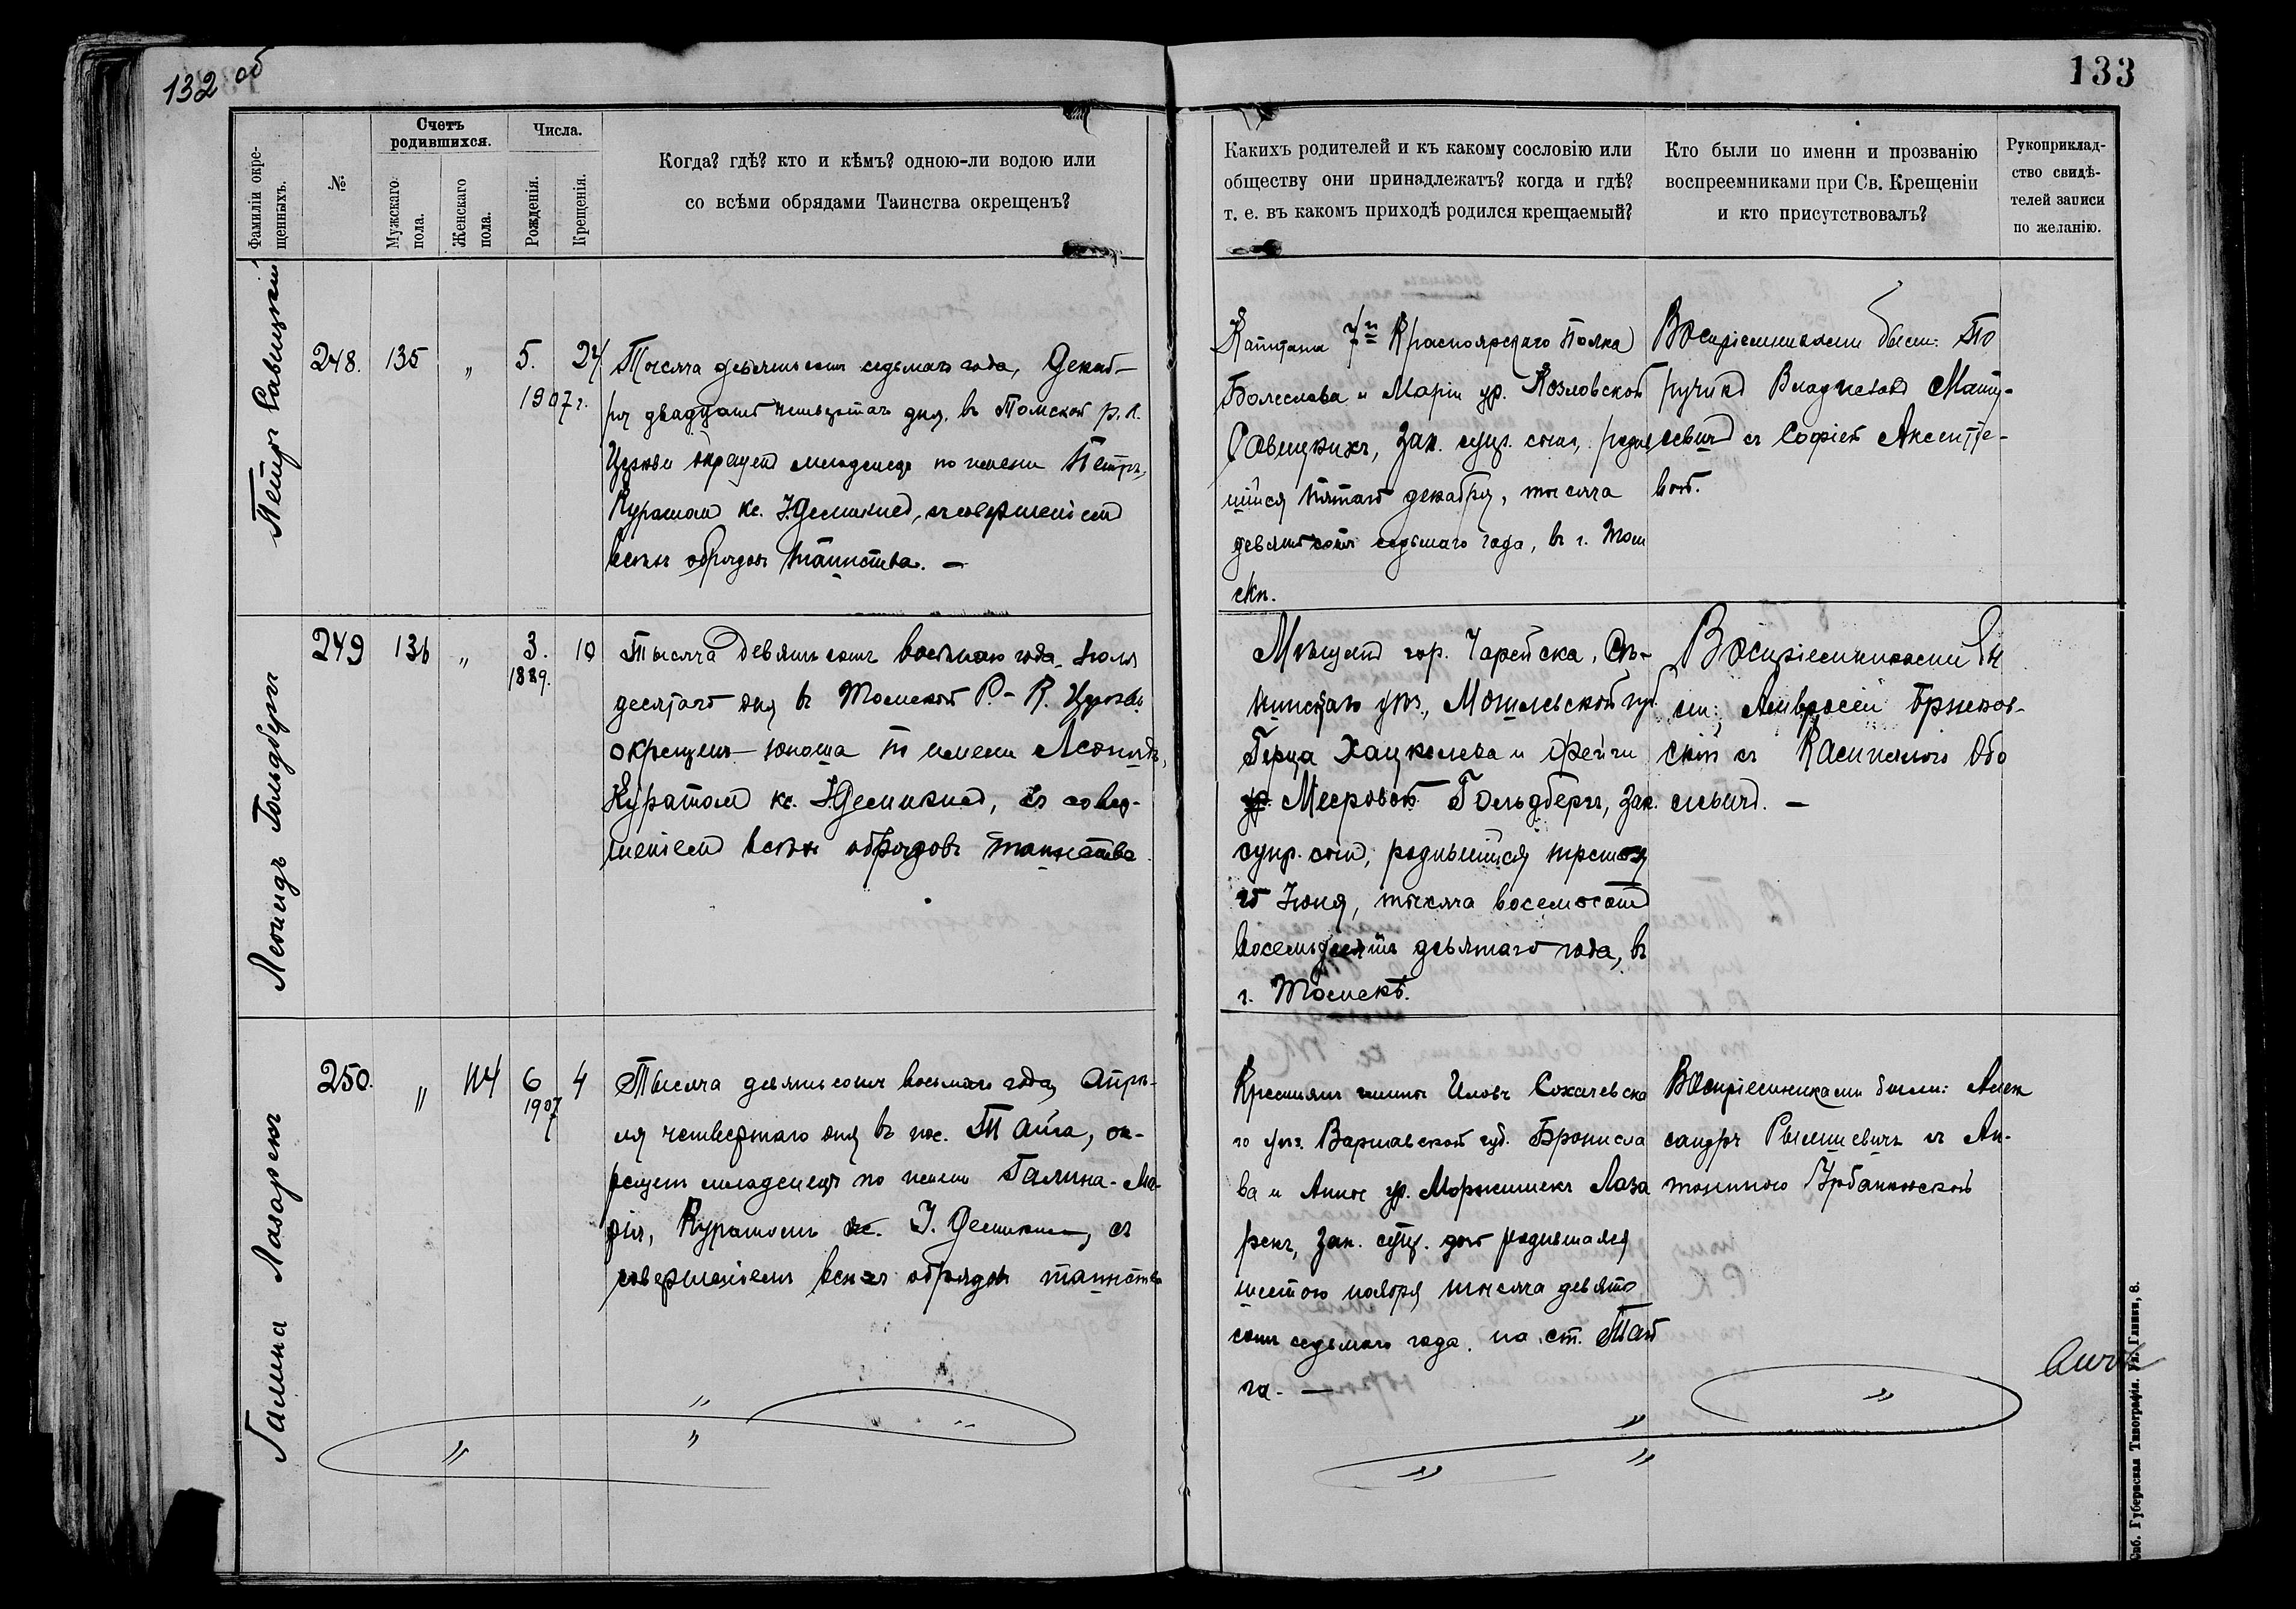 132 об
133
Фамиліи окре-
щенныхъ.
№
Счетъ
родившихся.
Мужскаго
пола.
Женскаго
пола.
Числа.
Рожденія.
Крещенія.
Когда? гдѣ? кто и кѣмъ? одною-ли водою или
со всѣми обрядами Таинства окрещенъ?
Какихъ родителей и къ какому сословію или
обществу они принадлежатъ? когда и гдѣ?
т. е. въ какомъ приходѣ родился крещаемый?
Кто были по имени и прозванію
воспреемниками при Св. Крещеніи
и кто присутствовалъ?
Рукоприклад-
ство свидѣ-
телей записи
по желанію.
Петръ Савицкій
248. 135 " 5. 24
1907 г.
Тысяча девятьсотъ седьмаго года, Декаб-
ря двадцать четвертаго дня, въ Томской р. к.
Церкви окрещенъ младенецъ по имени Петръ,
Куратомъ кс. І. Демикисъ, съ совершеніемъ
всѣхъ обрядовъ таинства. —
Капитана 7го Красноярскаго Полка
Болеслава и Маріи ур. Козловской
Савицкихъ, зак. супр. сынъ, родив
шійся пятаго декабря, тысяча
девятьсотъ седьмаго года, въ г. Том
скѣ.
Воспріемниками были: По
ручикъ Владиславъ Мату-
севичъ съ Софіей Аксентье-
вой.
Леонидъ Гольдбергъ
249 136 " 3. 10
1889.
Тысяча девятьсотъ восьмаго года, Іюля
десятаго дня въ Томской Р.-К. Церкви
окрещенъ юноша по имени Леонидъ,
Куратомъ кс. І. Демикисъ, съ совер-
шеніемъ всѣхъ обрядовъ таинства
Мѣщанъ гор. Чарейска, Сѣ-
ннинскаго уѣз., Могилевской губ
Герца Хацкелева и Фейги
ур. Мееровой Гольдбергъ, зак.
супр. сынъ, родившійся третья
го Іюня, тысяча восемьсотъ
восемьдесятъ девятаго года, въ
г. Томскѣ.
Воспріемниками бы
ли: Амвросій Бржезов-
скій съ Казиміромъ Або
левичъ. —
Галина Лазарекъ
250. " 114 6 4
1907
Тысяча девятьсотъ восьмаго года, Апрѣ-
ля четвертаго дня въ пос. Тайга, ок-
рещенъ младенецъ по имени Галина-Ма-
рія, Куратомъ кс. І. Демикисъ, съ
совершеніемъ всѣхъ обрядовъ таинства
Крестьянъ гмины Иловъ Сохачевска
го уѣз. Варшавской губ. Бронисла
ва и Анны ур. Моржишекъ Лаза
рекъ, зак. супр. дочь родившаяся
шестого ноября тысяча девять
сотъ седьмаго года, на ст. Тай
га. —
Воспріемниками были: Алек
сандръ Рымшевичъ съ Ан-
тониною Урбанковской
Спб. Губернская Типографія. Ул. Глинки, 8.